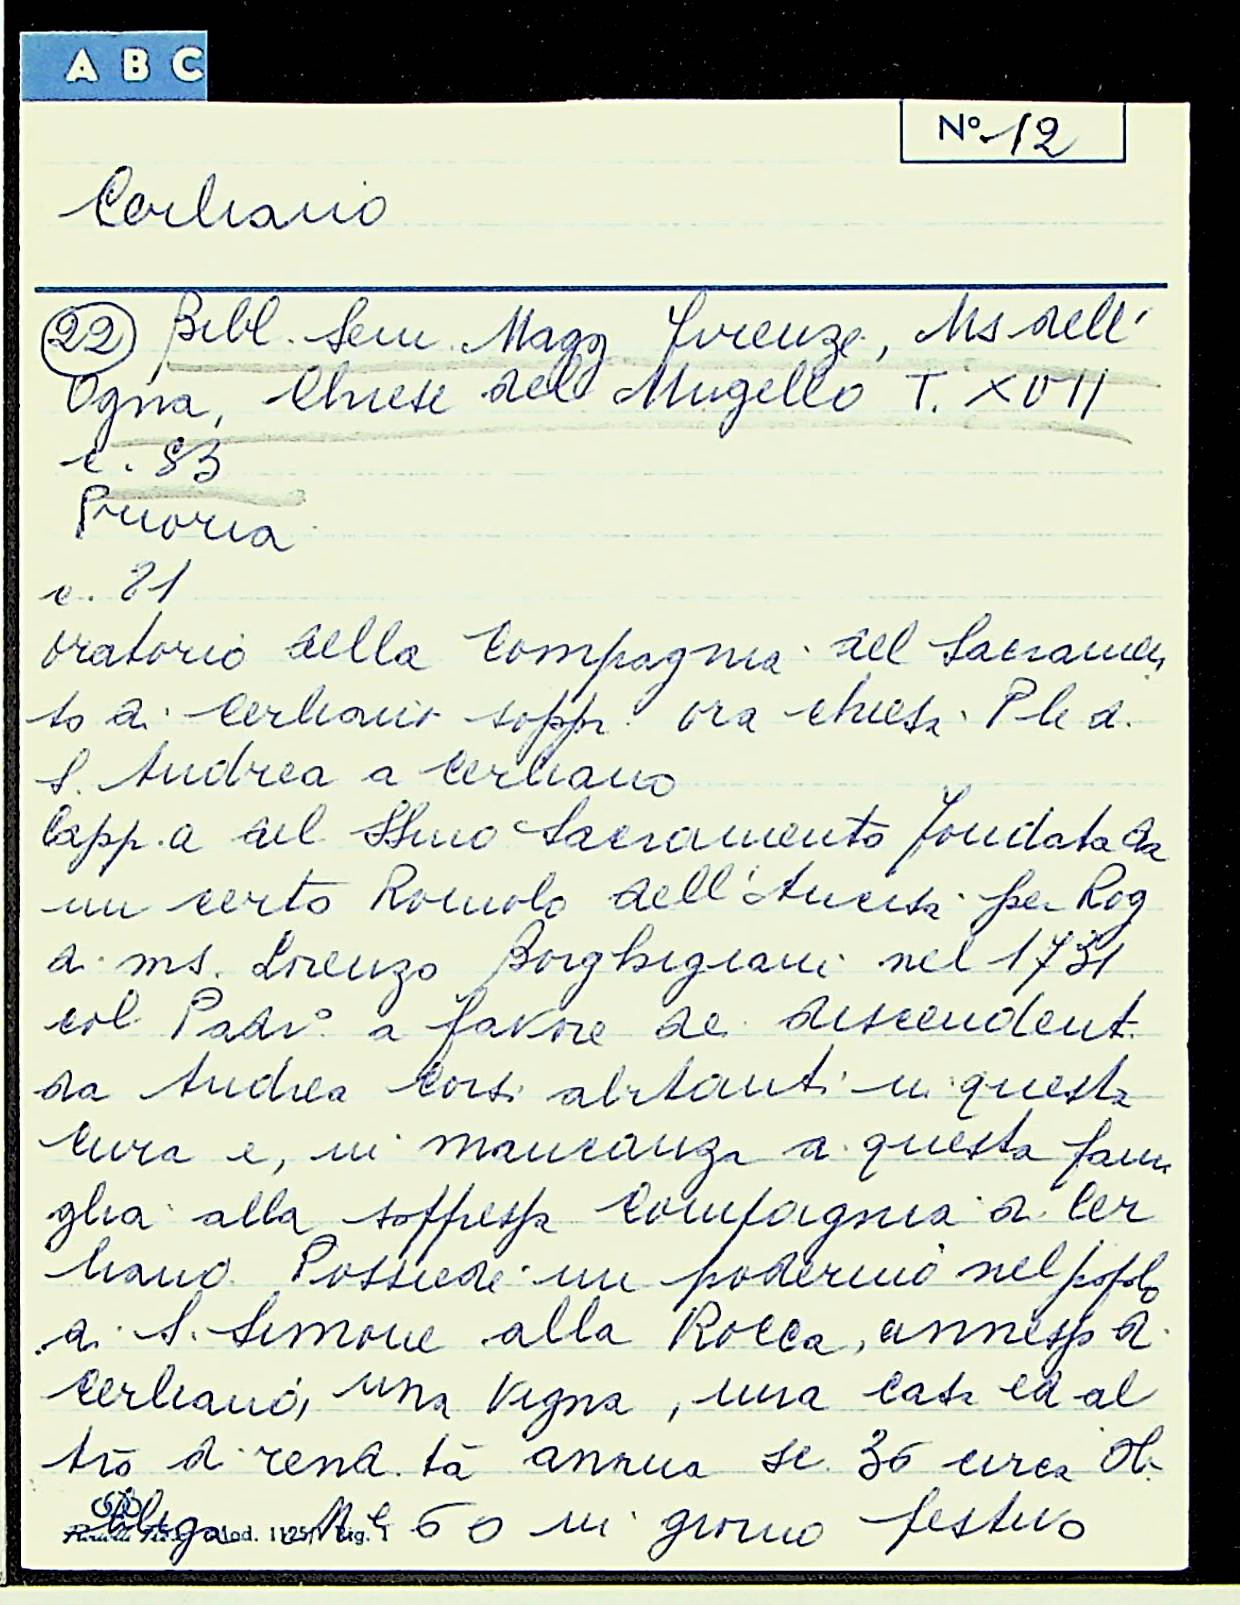 A B C
Nº 12
Cerliano
22 Bibl. Sem. Magg Firenze, Ms dell'
Ogna, Chiese del Mugello T. XVII
c. 83
Prioria
c. 81
oratorio della Compagnia del Sacramen
to di Cerliano sopp. ora chiesa Ple di
S. Andrea a Cerliano
Capp.a del SSmo Sacramento fondata da
un certo Romolo dell'Ancisa per Rog
di ms. Lorenzo Borghigiani nel 1731
col Padrº a favore de discendenti
da Andrea Corsi abitanti in questa
cura e, in mancanza di questa fami
glia alla soppressa Compagnia di Cer
liano. Possiede un poderino nel popolo
di S. Simone alla Rocca, annesso a
Cerliano, una vigna, una casa ed al
tro di rendita annua sc. 36 circa Ob
bligo Me 60 in giorno festivo
Mod. 1125/1 Rig. 1